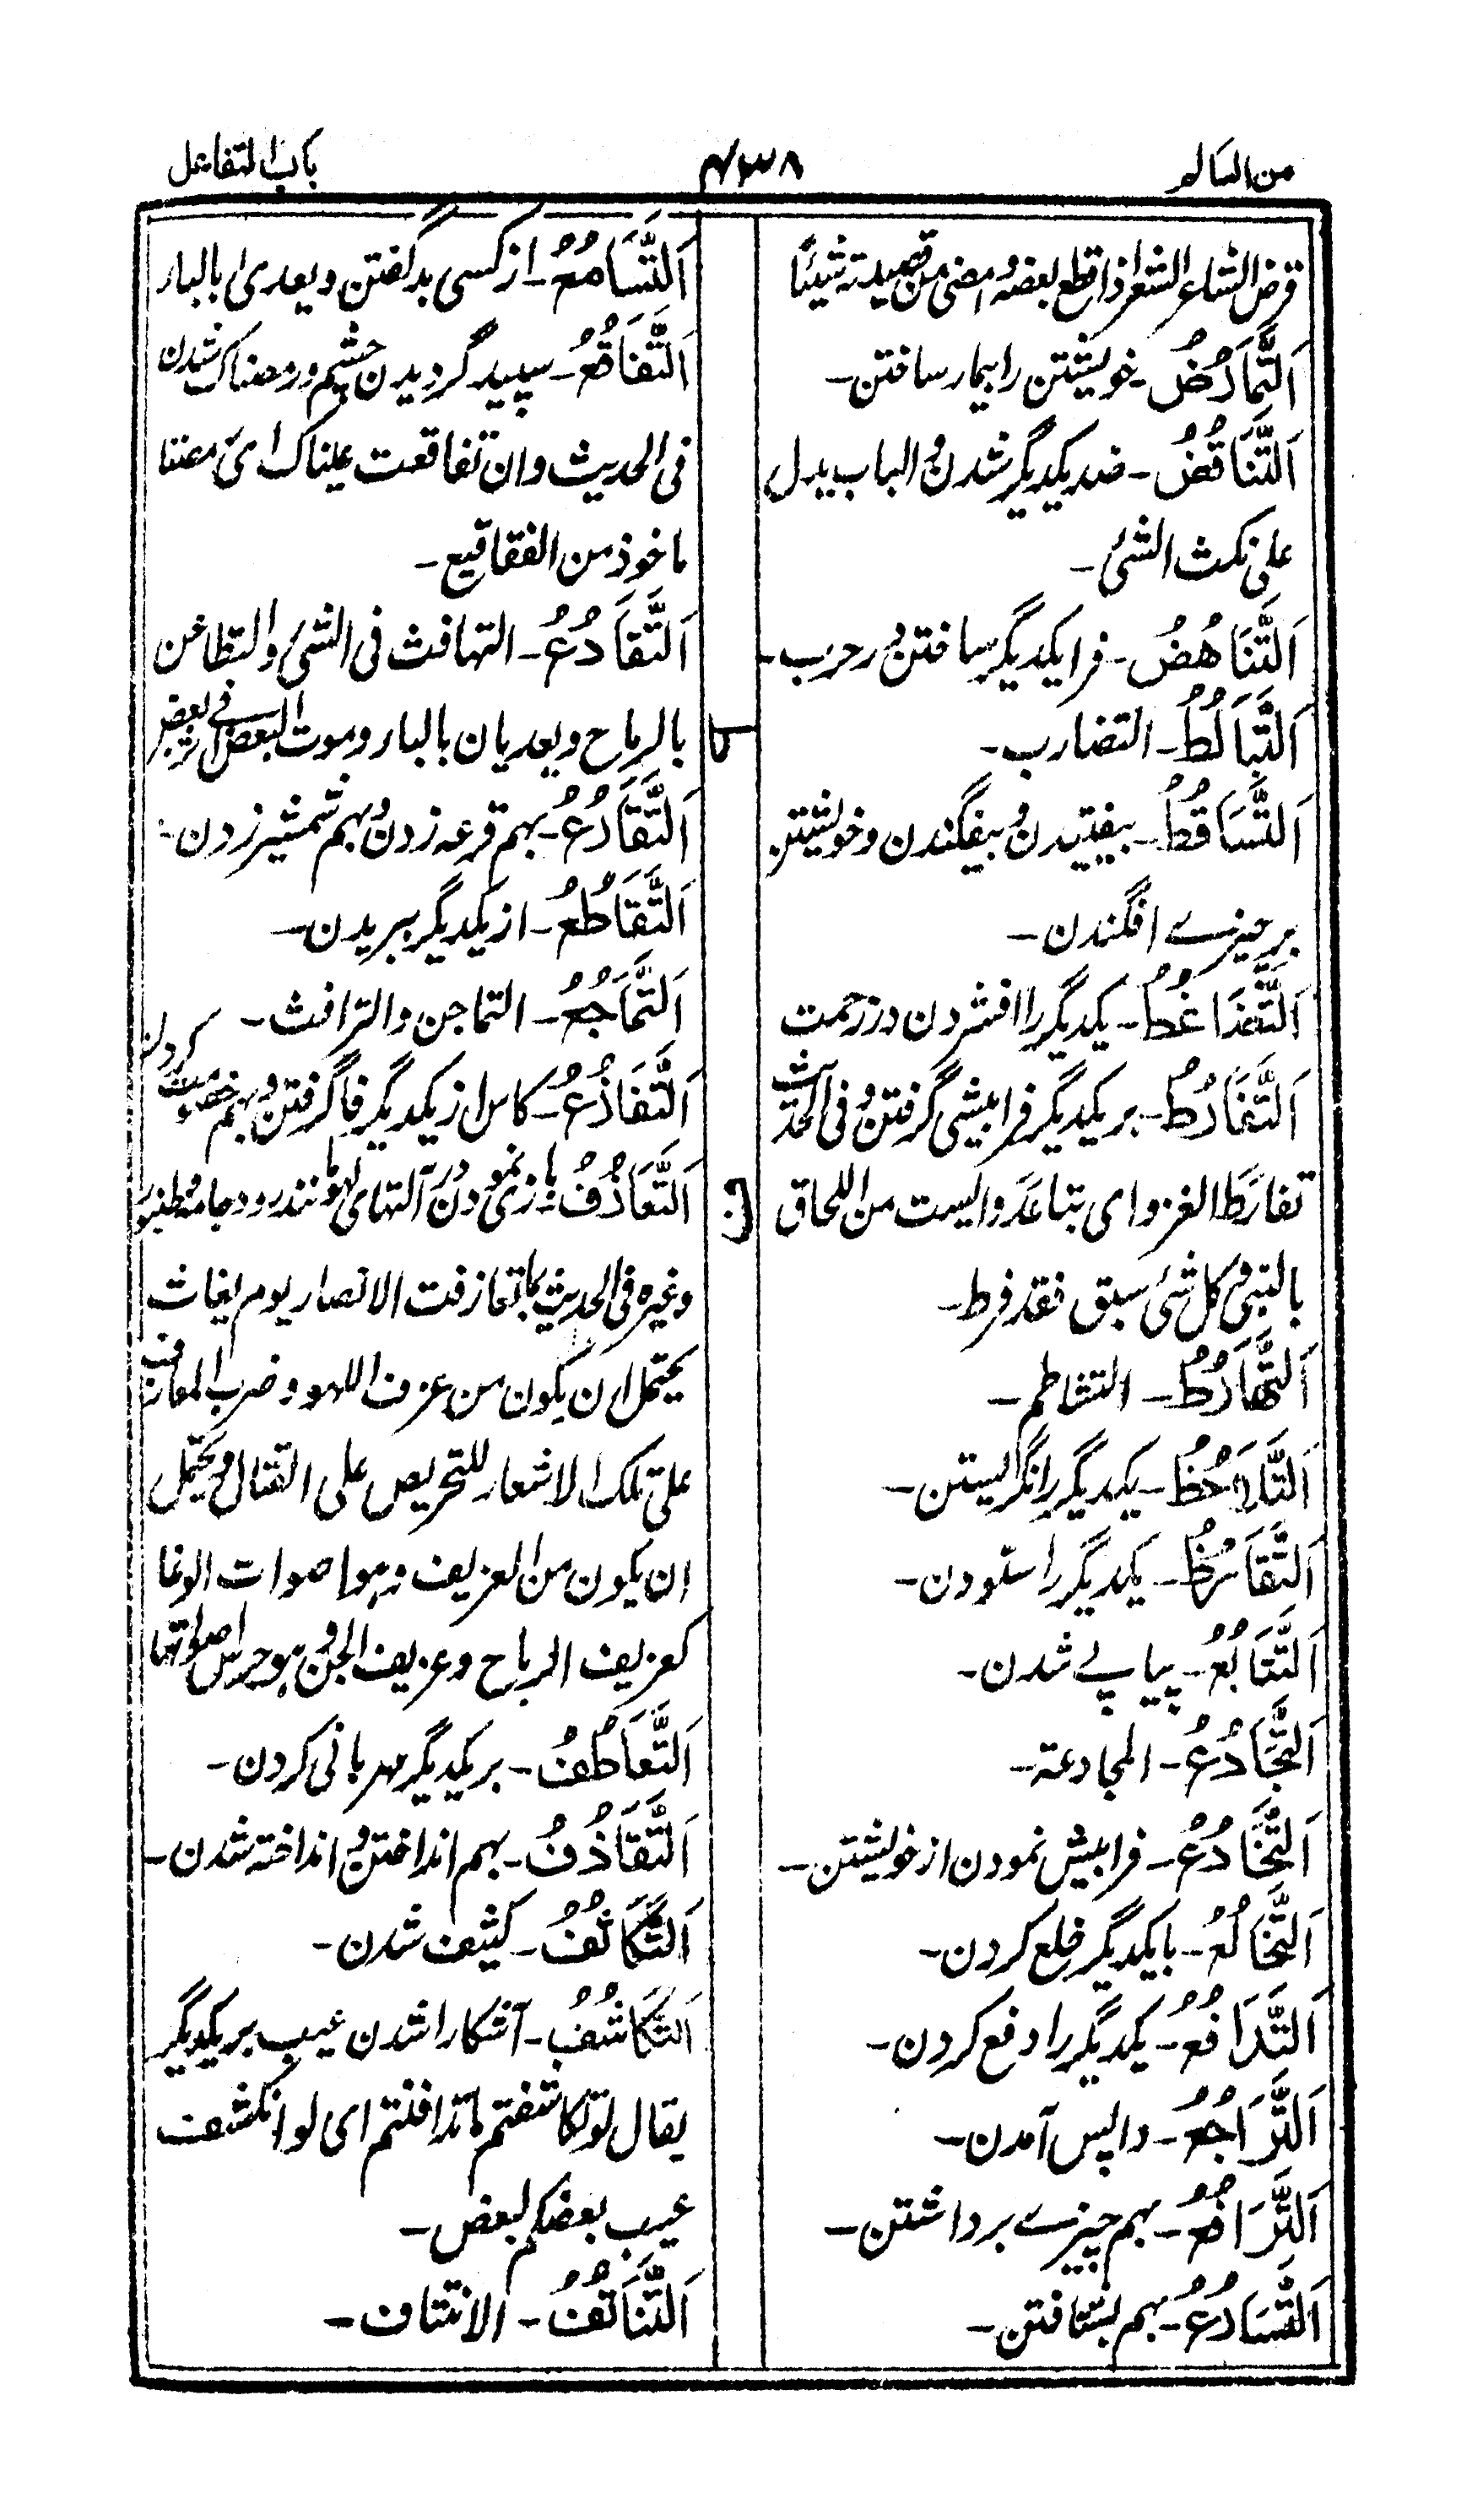 من السالم
۴۳۸
باب التفاعل
قرض الشاعر الشعر اذا قطع بعضه و امضى من قصيدته شيئا
اَلتَّمَارُضُ ـ خويشتن را بيمار ساختن ـ
اَلتَّنَاقُضُ ـ ضد يكديگر شدن و الباب يدل
على نكث الشئ ـ
اَلتَّنَاهُضُ ـ فرا يكديگر ساختن در حرب ـ
اَلتَّبَالُطُ ـ التضارب ـ
اَلتَّسَاقُطُ ـ بيفتيدن و بيفگندن و خويشتن
بر چيزے افگندن ـ
اَلتَّضَاغُطُ ـ يكديگر را افشردن در زحمت
اَلتَّفَارُطُ ـ بر يكديگر فرا پيشى گرفتن و فى الحديث
تفارَطَ الغزو اى تباعَدَ و اليست من اللحاق
بالتبنى و كل شئ سبق فقد فرط ـ
اَلتَّهَارُطُ ـ التشاطم ـ
اَلتَّلَاحُظُ ـ يكديگر را نگريستن ـ
اَلتَّقَارُظُ ـ يكديگر را ستودن ـ
اَلتَّتَابُعُ ـ پياپے شدن ـ
اَلتَّجَادُعُ ـ المجادعة ـ
اَلتَّخَادُعُ ـ فرا پيش نمودن از خويشتن ـ
اَلتَّخَالُعُ ـ با يكديگر خلع كردن ـ
اَلتَّدَافُعُ ـ يكديگر را دفع كردن ـ
اَلتَّرَاجُعُ ـ واپس آمدن ـ
اَلتَّرَافُعُ ـ بهم چيزے برداشتن ـ
اَلتَّسَارُعُ ـ بهم بشتافتن ـ
ط
ف
اَلتَّسَامُعُ ـ از كسى بد گفتن و يعدى بالباء
اَلتَّفَاقُعُ ـ سپيد گرديدن چشم و رمضناك شدن
فى الحديث و ان تفاقعت عيناك اى رمصتا
ماخوذ من الفقاقيع ـ
اَلتَّقَادُعُ ـ التهافت فى الشئ و التطاعن
بالرماح و يعديان بالباء و موت البعض فى اثر بعض
اَلتَّقَارُعُ ـ بهم قرعه زدن و بهم شمشير زدن ـ
اَلتَّقَاطُعُ ـ از يكديگر ببريدن ـ
اَلتَّمَاجُعُ ـ التماجن و الترافث ـ
اَلتَّنَازُعُ ـ كاس از يكديگر فا گرفتن و بهم خصومت كردن
اَلتَّعَازُفُ ـ بازى نمودن در آلتهاى لهو مانند رود جامه و طنبور
و غيره فى الحديث بما تعازفت الانصار يوم بغاث
يحتمل ان يكون من عزف اللهو و ضرب المعازف
على تلك الاشعار للتحريص على القتال و يحتمل
ان يكون من العزيف و هو اصوات الوغا
كعزيف الرياح و عزيف الجن و هو جرس اصواتها
اَلتَّعَاطُفُ ـ بر يكديگر مهربانى كردن ـ
اَلتَّقَاذُفُ ـ بهم انداختن و انداخته شدن ـ
اَلتَّكَاثُفُ ـ كثيف شدن ـ
اَلتَّكَاشُفُ ـ آشكارا شدن عيب بر يكديگر
يقال لو تكاشفتم ما تدافنتم اى لو انكشف
عيب بعضكم لبعض ـ
اَلتَّنَاتُفُ ـ الانتتاف ـ